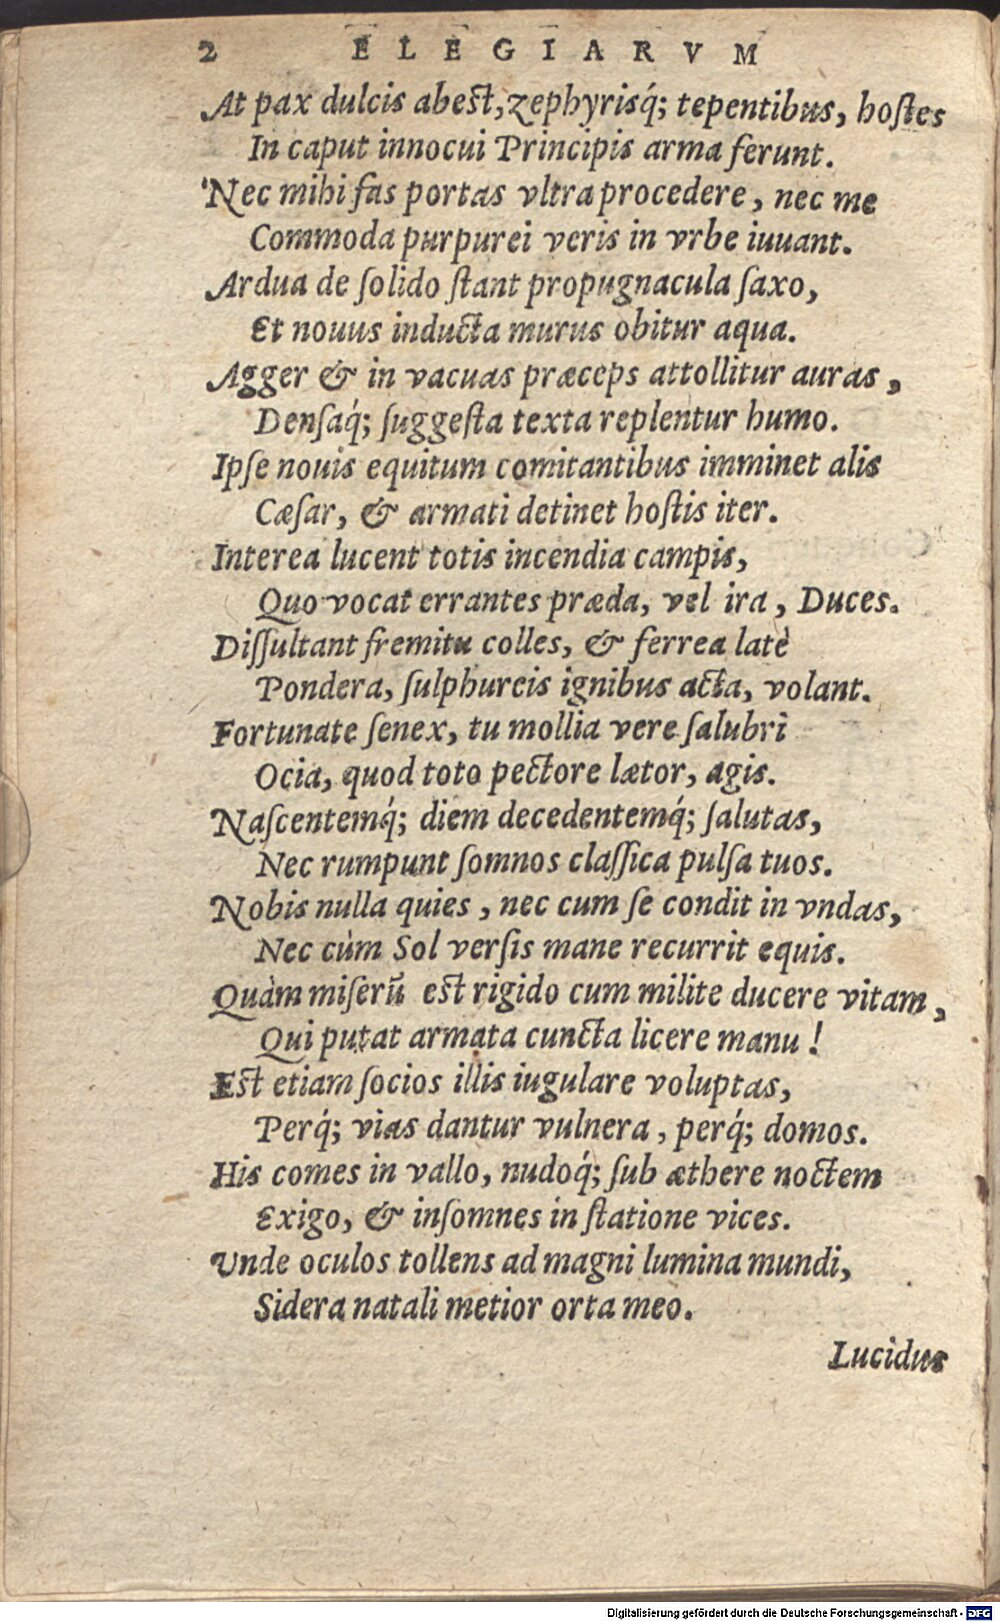 2 ELEGIARVM
At pax dulcis abest, zephyrisq́; tepentibus, hoſtes
In caput innocui Principis arma ferunt.
Nec mihi fas portas vltra procedere, nec me
Commoda purpurei veris in vrbe iuuant.
Ardua de ſolido ſtant propugnacula ſaxo,
Et nouus inducta murus obitur aqua.
Agger & in vacuas præceps attollitur auras,
Denſaq́; ſuggeſta texta replentur humo.
Ipſe nouis equitum comitantibus imminet alis
Cæſar, & armati detinet hoſtis iter.
Interea lucent totis incendia campis,
Quo vocat errantes præda, vel ira, Duces.
Diſſultant fremitu colles, & ferrea latè
Pondera, ſulphureis ignibus acta, volant.
Fortunate ſenex, tu mollia vere ſalubri
Ocia, quod toto pectore lætor, agis.
Naſcentemq́; diem decedentemq́; ſalutas,
Nec rumpunt ſomnos claſſica pulſa tuos.
Nobis nulla quies, nec cum ſe condit in vndas,
Nec cùm Sol verſis mane recurrit equis.
Quàm miſerū est rigido cum milite ducere vitam,
Qui putat armata cuncta licere manu!
Est etiam ſocios illis iugulare voluptas,
Perq́; vias dantur vulnera, perq́; domos.
His comes in vallo, nudoq́; ſub æthere noctem
Exigo, & inſomnes in ſtatione vices.
Vnde oculos tollens ad magni lumina mundi,
Sidera natali metior orta meo.
Lucidus
Digitalisierung gefördert durch die Deutsche Forschungsgemeinschaft - DFG